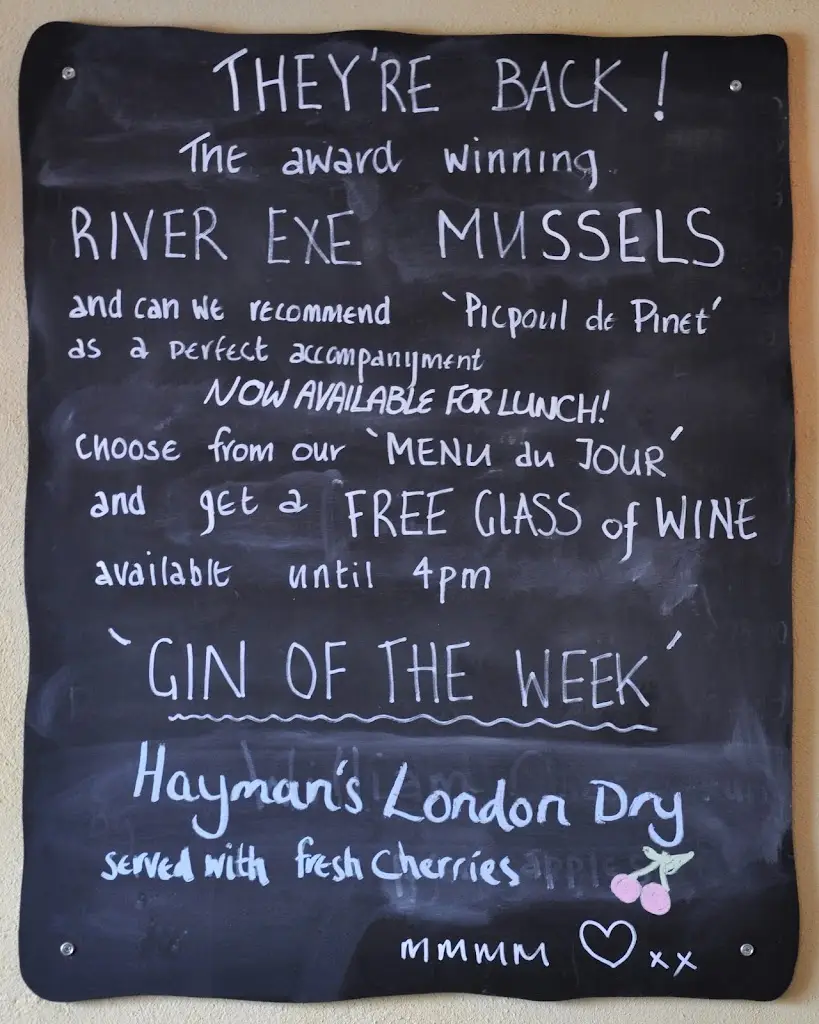 THEY'RE BACK!
The award winning
RIVER EXE MUSSELS
and can we recommend `Picpoul de Pinet'
as a perfect accompanyment
NOW AVAILABLE FOR LUNCH!
choose from our `MENU du JOUR'
and get a FREE GLASS of WINE
available until 4pm
`GIN OF THE WEEK'
Hayman's London Dry
served with fresh Cherries
MMMM xx